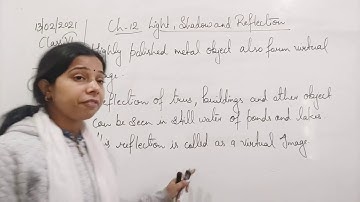 13/02/2021
Class VI
Ch-12 Light, Shadow and Reflection
Highly polished metal object also form virtual
Reflection of trees, buildings and other object
can be seen in still water of ponds and lakes
reflection is called as a virtual Image